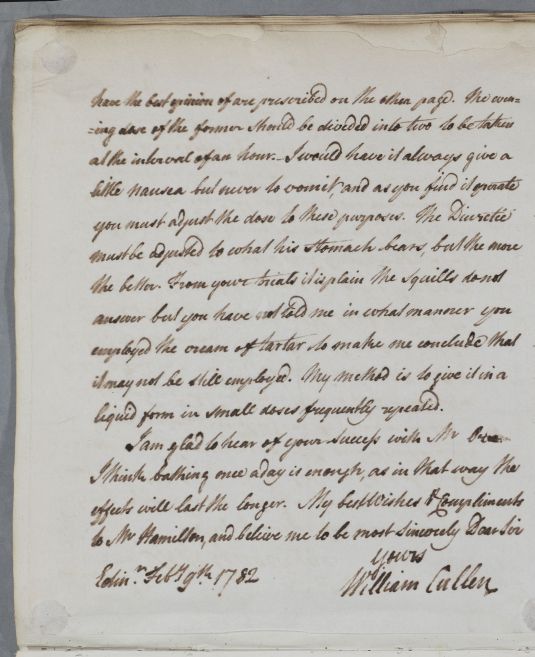 have the best opinion of are prescribed on the other page. The even=
=ing dose of the former should be divided into two to be taken
at the interval of an hour. I would have it always give a
little nausea but never to vomit, and as you find it operate
you must adjust the dose to these purposes. The Diuretic
must be adjusted to what his stomach bears, but the more
the better. From your trials it is plain the Squills do not
answer but you have not told me in what manner you
employed the cream of tartar to make me conclude that
it may not be still employed. My method is to give it in a
liquid form in small doses frequently repeated.
I am glad to hear of your success with Mr
I think bathing once a day is enough, as in that way the
effects will last the longer. My best wishes & Compliments
to Mr Hamilton, and believe me to be most sincerely Dear Sir
Yours
Edinr. Feby 9th. 1782
William Cullen